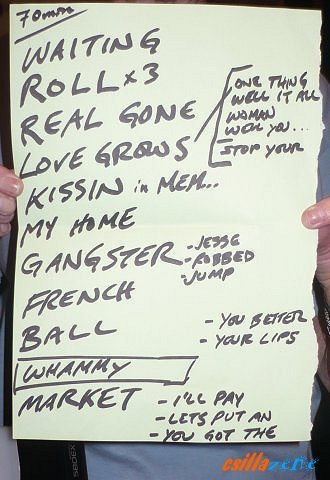 70min
WAITING
ROLL x3
REAL GONE
LOVE GROWS
ONE THING
WELL IT ALL
WOMAN
WELL YOU...
STOP YOUR
KISSIN in MEM...
MY HOME
GANGSTER
-JESSE
-ROBBED
-JUMP
FRENCH
BALL
- YOU BETTER
- YOUR LIPS
WHAMMY
MARKET
- I'LL PAY
- LETS PUT AN
- YOU GOT THE
csillazefie